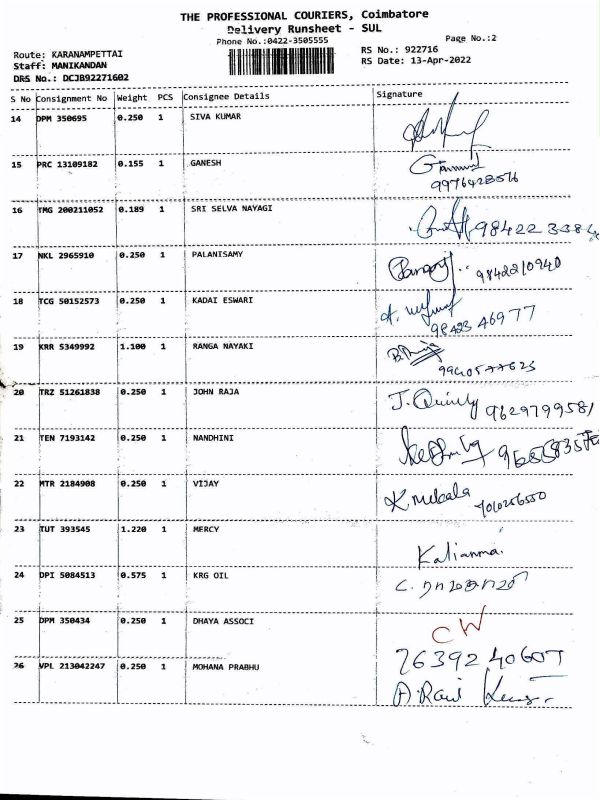 THE PROFESSIONAL COURIERS, Coimbatore
Delivery Runsheet - SUL
Phone No.:0422-3505555
Page No.:2
Route: KARANAMPETTAI
RS No.: 922716
Staff: MANIKANDAN
RS Date: 13-Apr-2022
DRS No.: DCJB92271602
S No Consignment No Weight PCS Consignee Details Signature
14 DPM 350695 0.250 1 SIVA KUMAR
15 PRC 13109182 0.155 1 GANESH
16 TMG 200211052 0.189 1 SRI SELVA NAYAGI
17 NKL 2965910 0.250 1 PALANISAMY
9842210940
18 TCG 50152573 0.250 1 KADAI ESWARI
98423 46977
19 KRR 5349992 1.100 1 RANGA NAYAKI
20 TRZ 51261838 0.250 1 JOHN RAJA
J. 9629799581
21 TEN 7193142 0.250 1 NANDHINI
22 MTR 2184908 0.250 1 VIJAY
K Mekala
23 TUT 393545 1.220 1 MERCY
Kalianma.
24 DPI 5084513 0.575 1 KRG OIL
25 DPM 350434 0.250 1 DHAYA ASSOCI
CW
26 VPL 213042247 0.250 1 MOHANA PRABHU
A. Ravi